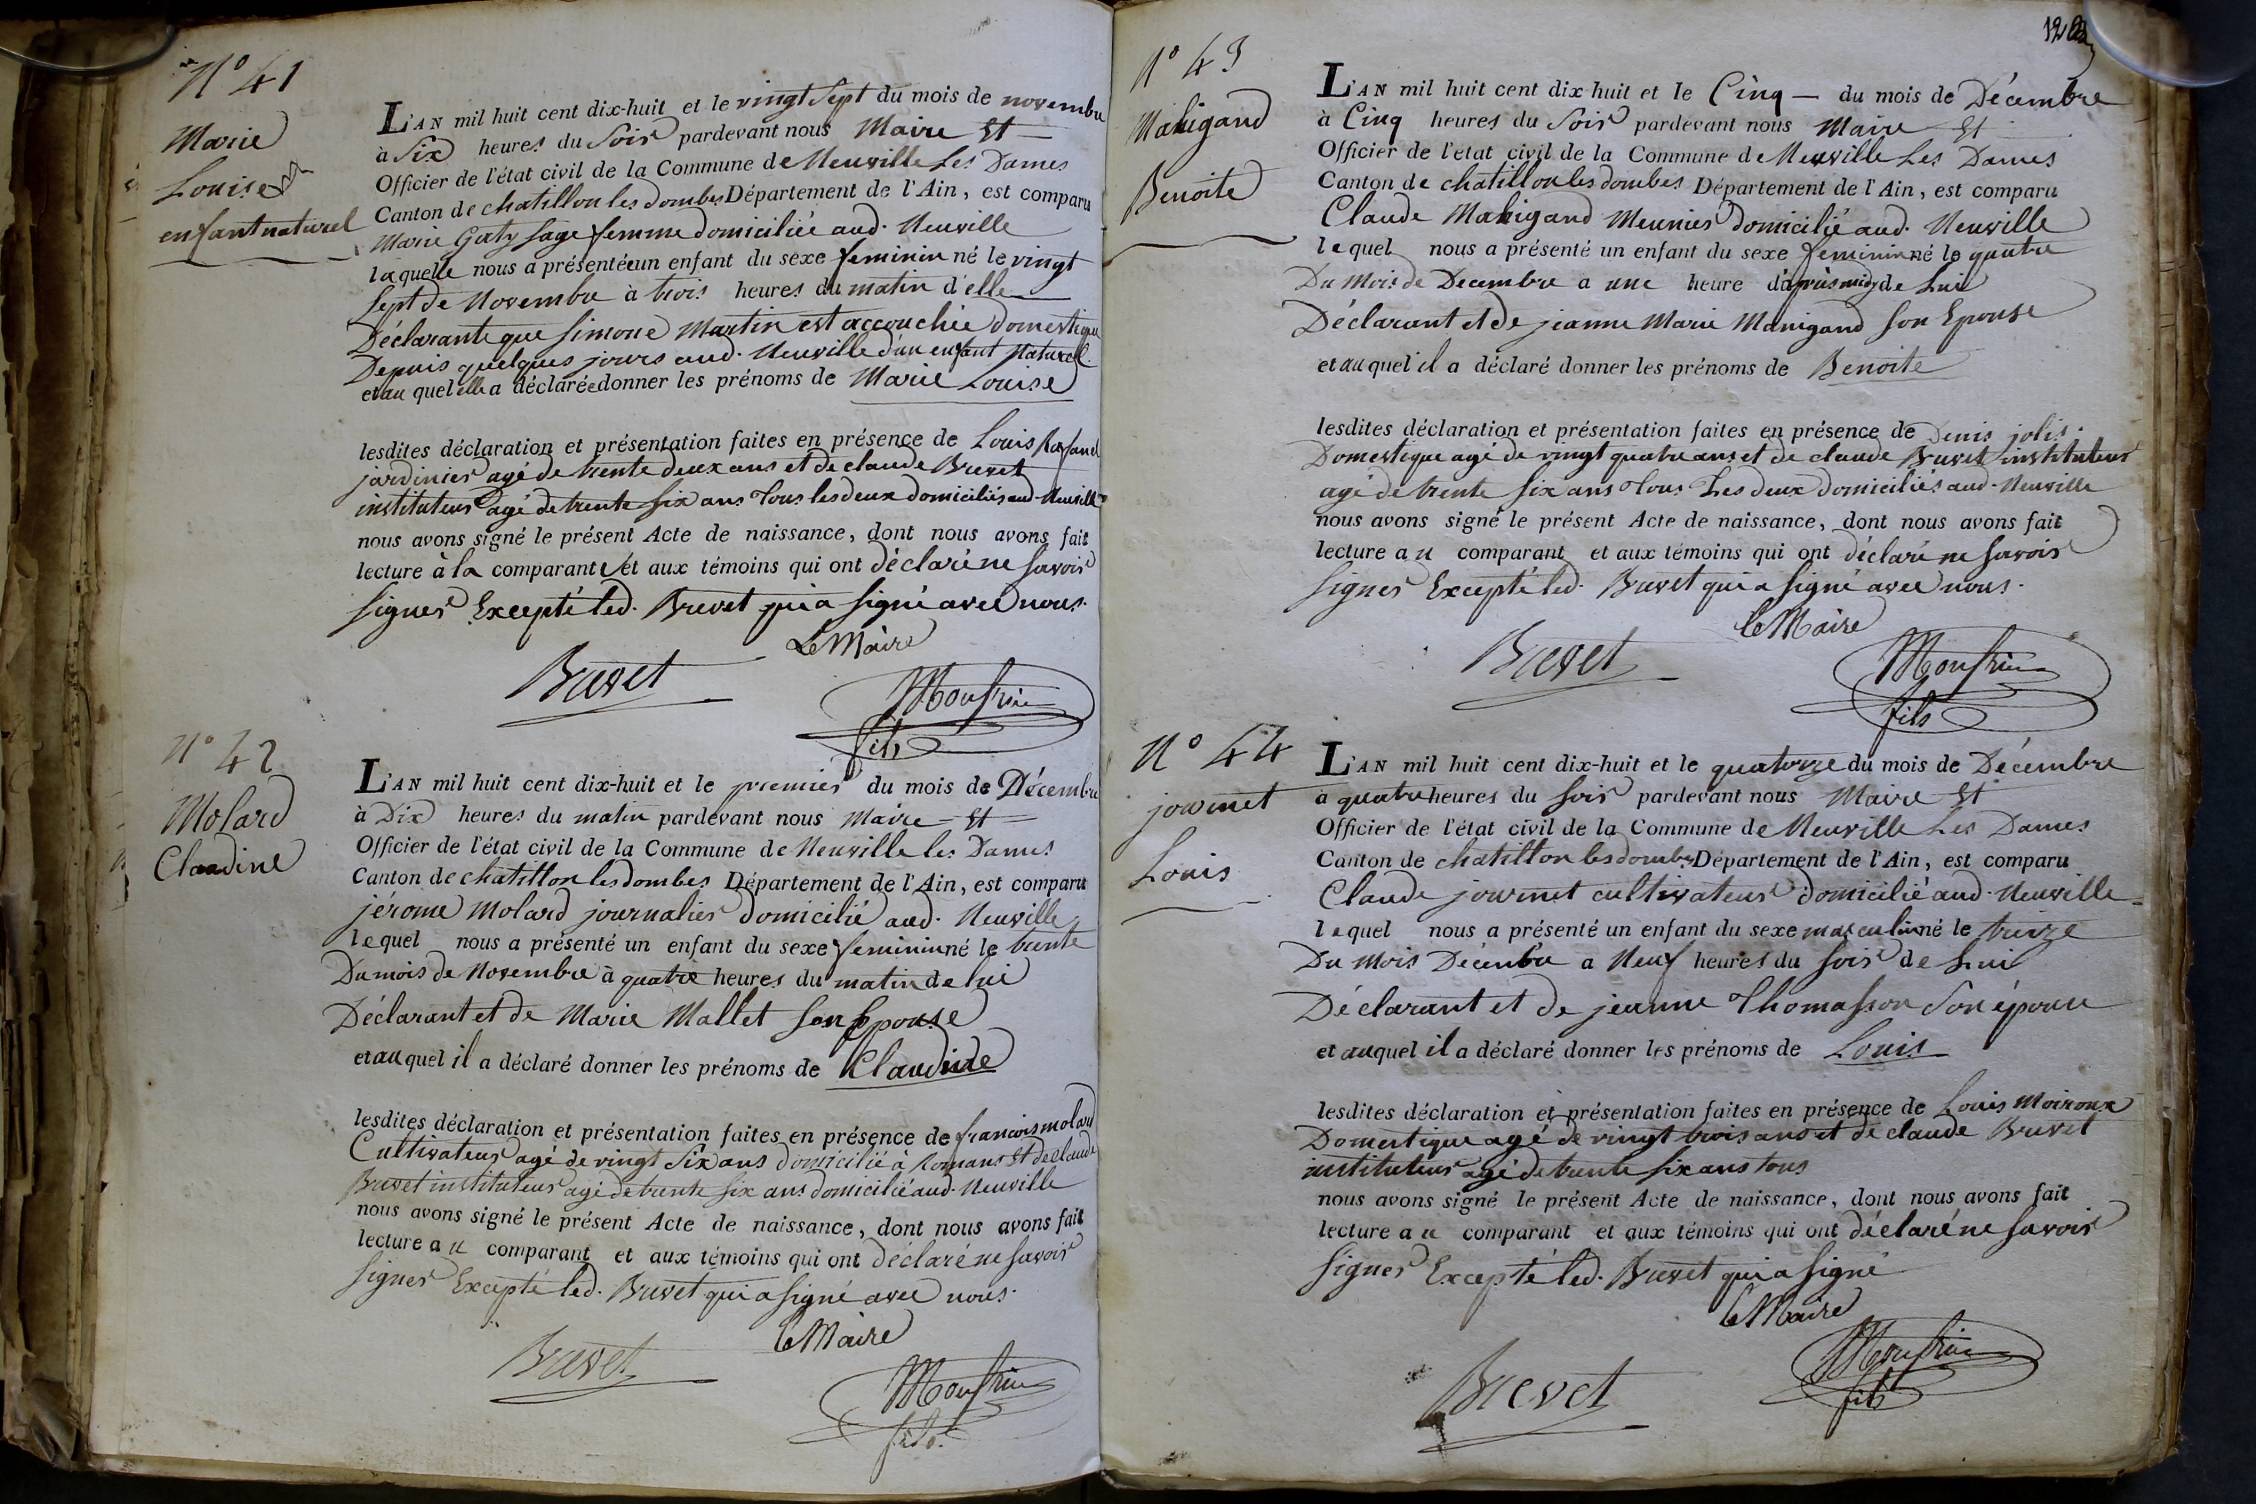 N° 41
Marie
Louise
enfant naturel
L'AN mil huit cent dix-huit et le vingt sept du mois de novembre
à Six heures du Soir pardevant nous Maire Et
Officier de l'état civil de la Commune de Neuville Les Dames
Canton de chatillon les dombes Département de l'Ain, est comparu
Marie Gaty sage femme domiciliée aud. Neuville
laquelle nous a présentée un enfant du sexe feminin né le vingt
Sept de Novembre à trois heures du matin d'elle
Déclarante que Simone Martin est accouchée domestique
Depuis quelques jours aud. Neuville d'un enfant Naturel.
et au quel elle a déclarée donner les prénoms de Marie Louise
lesdites déclaration et présentation faites en présence de Louis
jardinier agé de trente deux ans et de claude Brevet
instituteur agé de trente Six ans Tous les deux domiciliés aud. Neuville
nous avons signé le présent Acte de naissance, dont nous avons fait
lecture à la comparante et aux témoins qui ont déclaré ne Savoir
Signer Excepté led. Brevet qui a Signé avec nous.
Le Maire
Brevet
Monfrin
fils
N° 42
Molard
Claudine
L'AN mil huit cent dix-huit et le premier du mois de Décembre
à Dix heures du matin pardevant nous Maire Et
Officier de l'état civil de la Commune de Neuville les Dames
Canton de chatillon les dombes Département de l'Ain, est comparu
jerome Molard journalier domicilié aud. Neuville
lequel nous a présenté un enfant du sexe feminin né le trente
Du mois de Novembre à quatre heures du matin de lui
Déclarant et de Marie Mallet Son Epouse
et au quel il a déclaré donner les prénoms de Claudine
lesdites déclaration et présentation faites en présence de francois molard
Cultivateur agé de vingt Six ans domicilié à Romans Et de claude
Brevet instituteur agé de trente Six ans domicilié aud. Neuville
nous avons signé le présent Acte de naissance, dont nous avons fait
lecture au comparant et aux témoins qui ont déclaré ne Savoir
Signer Excepté led. Brevet qui a Signé avec nous.
Le Maire
Brevet
Monfrin
fils.
N° 43
Manigand
Benoite
L'AN mil huit cent dix-huit et le Cinq — du mois de Décembre
à Cinq heures du Soir pardevant nous Maire Et
Officier de l'état civil de la Commune de Neuville Les Dames
Canton de chatillon les dombes Département de l'Ain, est comparu
Claude Manigand Meunier domicilié aud. Neuville
lequel nous a présenté un enfant du sexe feminin né le quatre
Du Mois de Decembre a une heure d'après midy de Lui
Déclarant et de jeanne Marie Manigand Son Epouse
et au quel il a déclaré donner les prénoms de Benoite
lesdites déclaration et présentation faites en présence de Denis jolis.
Domestique agé de vingt quatre ans et de claude Brevet instituteur
agé de trente Six ans Tous Les deux domiciliés aud. Neuville
nous avons signé le présent Acte de naissance, dont nous avons fait
lecture au comparant et aux témoins qui ont déclaré ne Savoir
Signer Excepté led. Brevet qui a Signé avec nous.
Le Maire
Brevet
Monfrin
fils
N° 44
journet
Louis
L'AN mil huit cent dix-huit et le quatorze du mois de Décembre
à quatre heures du Soir pardevant nous Maire Et
Officier de l'état civil de la Commune de Neuville Les Dames
Canton de chatillon les dombes Département de l'Ain, est comparu
Claude journet cultivateur domicilié aud. Neuville
lequel nous a présenté un enfant du sexe masculin né le treize
Du Mois Décembre a Neuf heures du Soir de Lui
Déclarant et de jeanne Thomasson Son épouse
et auquel il a déclaré donner les prénoms de Louis
lesdites déclaration et présentation faites en présence de Louis Moiroux
Domestique agé de vingt trois ans et de claude Brevet
instituteur agé de trente Six ans tous
nous avons signé le présent Acte de naissance, dont nous avons fait
lecture au comparant et aux témoins qui ont déclaré ne Savoir
Signer Excepté led. Brevet qui a Signé
Le Maire
Brevet
Monfrin
fils